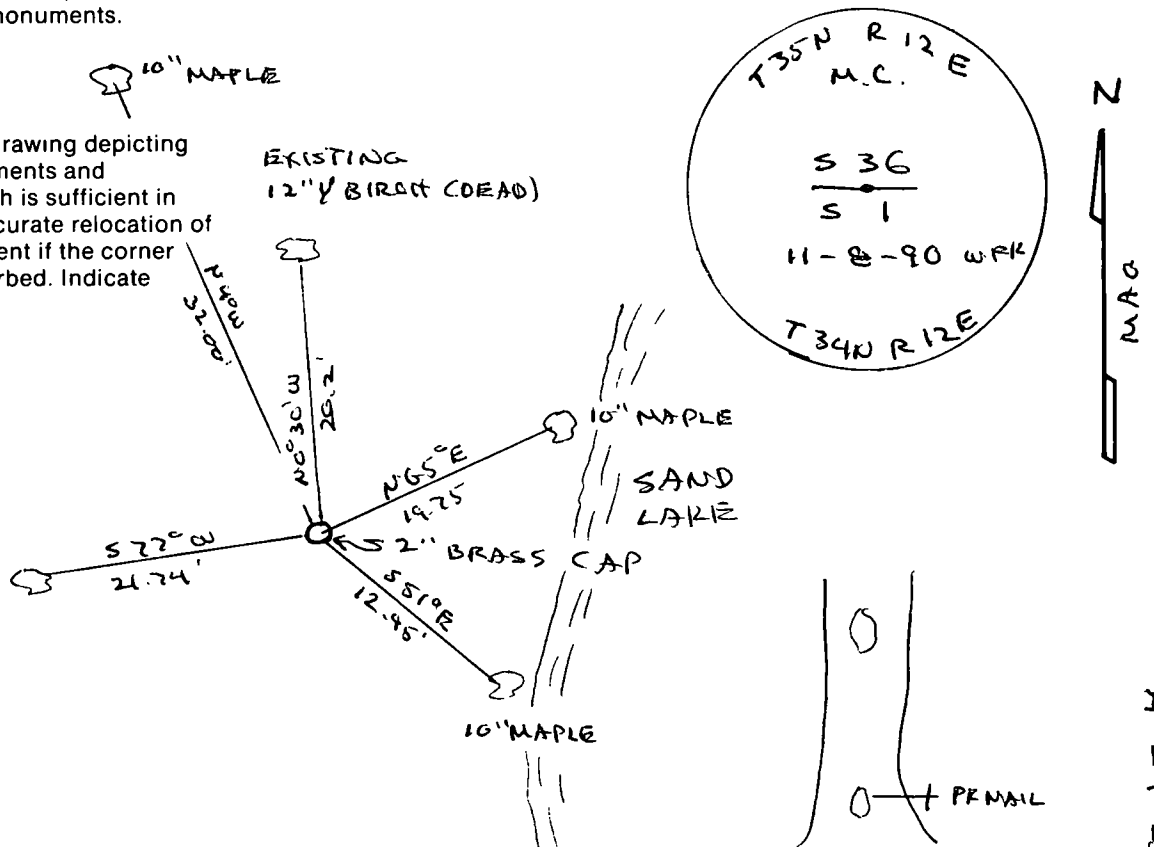 monuments.
10" MAPLE
rawing depicting
ments and
h is sufficient in
curate relocation of
ent if the corner
rbed. Indicate
EXISTING
12" BIRCH (DEAD)
N40W
32.00'
N0°30'W
20.2'
N65°E
19.75
10" MAPLE
SAND
LAKE
S77°W
21.74'
2" BRASS CAP
S51°E
12.95'
10" MAPLE
T35N R12E
M.C.
S 36
S 1
11-8-90 WFK
T34N R12E
N
MAG
PK NAIL